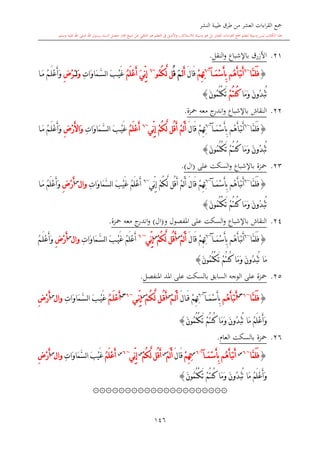 جمع القراءات العشر من طرق طيبة النشر
٢١. الأزرق بالإشباع والنقل.
﴿ فَلَمَّآ أَنۢبَأَهُم بِأَسْمَآئِهِمْ قَالَ أَلَمْ أَقُل لَّكُمْ إِنِّىٓ أَعْلَمُ غَيْبَ السَّمَاوَاتِ وَالْأَرْضِ وَأَعْلَمُ مَا
تُبْدُونَ وَمَا كُنتُمْ تَكْتُمُونَ ﴾
٢٢. النقاش بالإشباع واندرج معه حمزة.
﴿ فَلَمَّآ أَنۢبَأَهُم بِأَسْمَآئِهِمْ قَالَ أَلَمْ أَقُل لَّكُمْ إِنِّىٓ أَعْلَمُ غَيْبَ السَّمَاوَاتِ وَالْأَرْضِ وَأَعْلَمُ مَا
تُبْدُونَ وَمَا كُنتُمْ تَكْتُمُونَ ﴾
٢٣. حمزة بالإشباع والسكت على (ال).
﴿ فَلَمَّآ أَنۢبَأَهُم بِأَسْمَآئِهِمْ قَالَ أَلَمْ أَقُل لَّكُمْ إِنِّىٓ أَعْلَمُ غَيْبَ السَّمَاوَاتِ وال س أَرْضِ وَأَعْلَمُ مَا
تُبْدُونَ وَمَا كُنتُمْ تَكْتُمُونَ ﴾
٢٤. النقاش بالإشباع والسكت على المفصول و(ال) واندرج معه حمزة.
﴿ فَلَمَّآ أَنۢبَأَهُم بِأَسْمَآئِهِمْ قَالَ أَلَمْ س أَقُل لَّكُمْ س إِنِّىٓ أَعْلَمُ غَيْبَ السَّمَاوَاتِ وال س أَرْضِ وَأَعْلَمُ
مَا تُبْدُونَ وَمَا كُنتُمْ تَكْتُمُونَ ﴾
٢٥. حمزة على الوجه السابق بالسكت على المد المنفصل.
﴿ فَلَمَّآ س أَنۢبَأَهُم بِأَسْمَآئِهِمْ قَالَ أَلَمْ س أَقُل لَّكُمْ س إِنِّىٓ س أَعْلَمُ غَيْبَ السَّمَاوَاتِ وال س أَرْضِ
وَأَعْلَمُ مَا تُبْدُونَ وَمَا كُنتُمْ تَكْتُمُونَ ﴾
٢٦. حمزة بالسكت العام.
﴿ فَلَمَّآ س أَنۢبَأَهُم بِأَسْمَآ س ئِهِمْ قَالَ أَلَمْ س أَقُل لَّكُمْ س إِنِّىٓ س أَعْلَمُ غَيْبَ السَّمَاوَاتِ وال س أَرْضِ
وَأَعْلَمُ مَا تُبْدُونَ وَمَا كُنتُمْ تَكْتُمُونَ ﴾
١٤٦